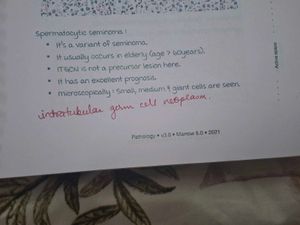 Spermatocytic seminoma :
• It's a variant of seminoma.
• It usually occurs in elderly (age > 60years).
• ITGCN is not a precursor lesion here.
• It has an excellent prognosis.
• microscopically : Small, medium & giant cells are seen.
intratubular germ cell neoplasm.
Pathology • v3.0 • Marrow 6.0 • 2021
Active space